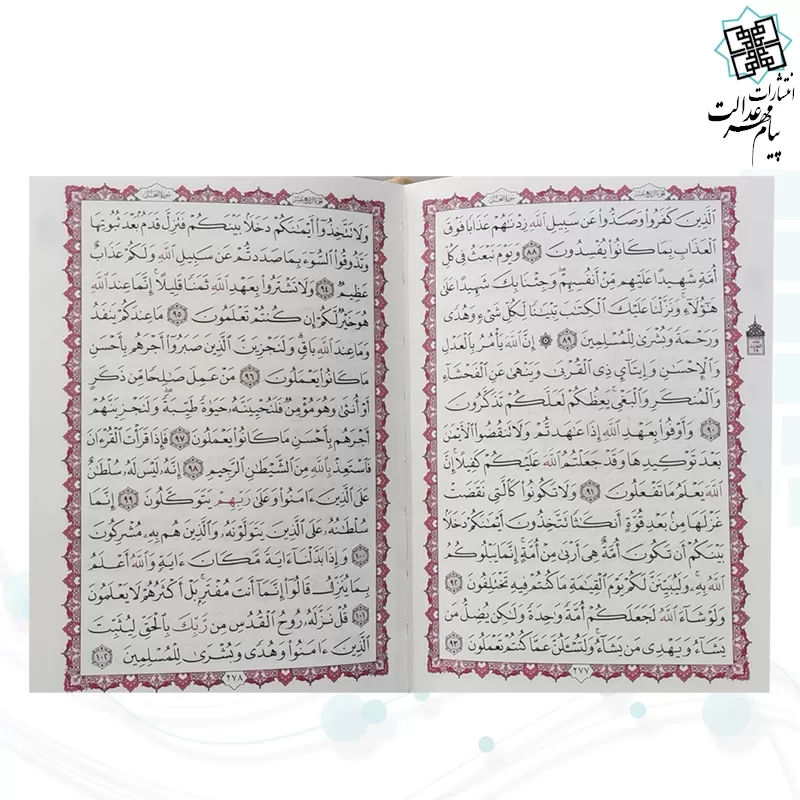 انتشارات
پیام مهر عدالت
الجزء الرابع عشر
سورة النحل
الَّذِينَ كَفَرُوا وَصَدُّوا عَن سَبِيلِ اللَّهِ زِدْنَٰهُمْ عَذَابًا فَوْقَ
الْعَذَابِ بِمَا كَانُوا يُفْسِدُونَ ٨٨ وَيَوْمَ نَبْعَثُ فِي كُلِّ
أُمَّةٍ شَهِيدًا عَلَيْهِم مِّنْ أَنفُسِهِمْ ۖ وَجِئْنَا بِكَ شَهِيدًا عَلَىٰ
هَٰٓؤُلَآءِ ۚ وَنَزَّلْنَا عَلَيْكَ الْكِتَٰبَ تِبْيَٰنًا لِّكُلِّ شَيْءٍ وَهُدًى
وَرَحْمَةً وَبُشْرَىٰ لِلْمُسْلِمِينَ ٨٩ ۞ إِنَّ اللَّهَ يَأْمُرُ بِالْعَدْلِ
وَالْإِحْسَٰنِ وَإِيتَآئِ ذِي الْقُرْبَىٰ وَيَنْهَىٰ عَنِ الْفَحْشَآءِ
وَالْمُنكَرِ وَالْبَغْيِ ۚ يَعِظُكُمْ لَعَلَّكُمْ تَذَكَّرُونَ
٩٠ وَأَوْفُوا بِعَهْدِ اللَّهِ إِذَا عَٰهَدتُّمْ وَلَا تَنقُضُوا الْأَيْمَٰنَ
بَعْدَ تَوْكِيدِهَا وَقَدْ جَعَلْتُمُ اللَّهَ عَلَيْكُمْ كَفِيلًا ۚ إِنَّ
اللَّهَ يَعْلَمُ مَا تَفْعَلُونَ ٩١ وَلَا تَكُونُوا كَالَّتِي نَقَضَتْ
غَزْلَهَا مِن بَعْدِ قُوَّةٍ أَنكَٰثًا تَتَّخِذُونَ أَيْمَٰنَكُمْ دَخَلًا
بَيْنَكُمْ أَن تَكُونَ أُمَّةٌ هِيَ أَرْبَىٰ مِنْ أُمَّةٍ ۚ إِنَّمَا يَبْلُوكُمُ
اللَّهُ بِهِ ۚ وَلَيُبَيِّنَنَّ لَكُمْ يَوْمَ الْقِيَٰمَةِ مَا كُنتُمْ فِيهِ تَخْتَلِفُونَ ٩٢
وَلَوْ شَآءَ اللَّهُ لَجَعَلَكُمْ أُمَّةً وَٰحِدَةً وَلَٰكِن يُضِلُّ مَن
يَشَآءُ وَيَهْدِي مَن يَشَآءُ ۚ وَلَتُسْـَٔلُنَّ عَمَّا كُنتُمْ تَعْمَلُونَ ٩٣
٢٧٧
الجزء الرابع عشر
سورة النحل
وَلَا تَتَّخِذُوا أَيْمَٰنَكُمْ دَخَلًا بَيْنَكُمْ فَتَزِلَّ قَدَمٌ بَعْدَ ثُبُوتِهَا
وَتَذُوقُوا السُّوٓءَ بِمَا صَدَدتُّمْ عَن سَبِيلِ اللَّهِ ۖ وَلَكُمْ عَذَابٌ
عَظِيمٌ ٩٤ وَلَا تَشْتَرُوا بِعَهْدِ اللَّهِ ثَمَنًا قَلِيلًا ۚ إِنَّمَا عِندَ اللَّهِ
هُوَ خَيْرٌ لَّكُمْ إِن كُنتُمْ تَعْلَمُونَ ٩٥ مَا عِندَكُمْ يَنفَدُ
وَمَا عِندَ اللَّهِ بَاقٍ ۗ وَلَنَجْزِيَنَّ الَّذِينَ صَبَرُوا أَجْرَهُم بِأَحْسَنِ
مَا كَانُوا يَعْمَلُونَ ٩٦ مَنْ عَمِلَ صَٰلِحًا مِّن ذَكَرٍ
أَوْ أُنثَىٰ وَهُوَ مُؤْمِنٌ فَلَنُحْيِيَنَّهُ حَيَوٰةً طَيِّبَةً ۖ وَلَنَجْزِيَنَّهُمْ
أَجْرَهُم بِأَحْسَنِ مَا كَانُوا يَعْمَلُونَ ٩٧ فَإِذَا قَرَأْتَ الْقُرْءَانَ
فَاسْتَعِذْ بِاللَّهِ مِنَ الشَّيْطَٰنِ الرَّجِيمِ ٩٨ إِنَّهُ لَيْسَ لَهُ سُلْطَٰنٌ
عَلَى الَّذِينَ ءَامَنُوا وَعَلَىٰ رَبِّهِمْ يَتَوَكَّلُونَ ٩٩ إِنَّمَا
سُلْطَٰنُهُ عَلَى الَّذِينَ يَتَوَلَّوْنَهُ وَالَّذِينَ هُم بِهِ مُشْرِكُونَ
١٠٠ وَإِذَا بَدَّلْنَآ ءَايَةً مَّكَانَ ءَايَةٍ ۙ وَاللَّهُ أَعْلَمُ
بِمَا يُنَزِّلُ قَالُوٓا إِنَّمَآ أَنتَ مُفْتَرٍ ۚ بَلْ أَكْثَرُهُمْ لَا يَعْلَمُونَ
١٠١ قُلْ نَزَّلَهُ رُوحُ الْقُدُسِ مِن رَّبِّكَ بِالْحَقِّ لِيُثَبِّتَ
الَّذِينَ ءَامَنُوا وَهُدًى وَبُشْرَىٰ لِلْمُسْلِمِينَ ١٠٢
٢٧٨